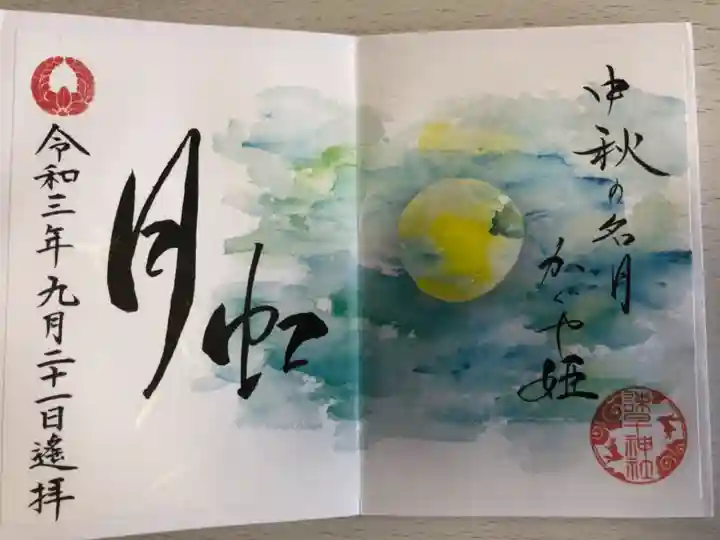 中秋の名月
かぐや姫
月虹
令和三年九月二十一日遙拝
神社